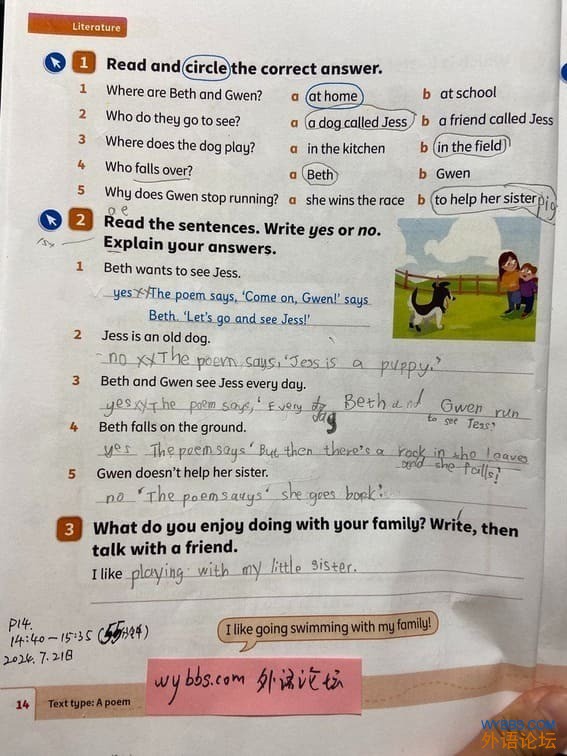 Literature
1 Read and circle the correct answer.
1 Where are Beth and Gwen? a at home b at school
2 Who do they go to see? a a dog called Jess b a friend called Jess
3 Where does the dog play? a in the kitchen b in the field
4 Who falls over? a Beth b Gwen
5 Why does Gwen stop running? a she wins the race b to help her sister pig
2 Read the sentences. Write yes or no.
Explain your answers.
1 Beth wants to see Jess.
yes The poem says, 'Come on, Gwen!' says
Beth. 'Let's go and see Jess!'
2 Jess is an old dog.
no xy The poem says, 'Jess is a puppy.'
3 Beth and Gwen see Jess every day.
yes xy The poem says, 'Every day Beth and Gwen run
to see Jess!
4 Beth falls on the ground.
yes The poem says 'But then there's a rock in the leaves
and she falls!
5 Gwen doesn't help her sister.
no 'The poem says' she goes back!
3 What do you enjoy doing with your family? Write, then
talk with a friend.
I like playing with my little sister.
I like going swimming with my family!
P14.
14:40-15:35 (55分钟)
2024.7.21日
wybbs.com 外语论坛
14 Text type: A poem
WYBBS.COM
外语论坛